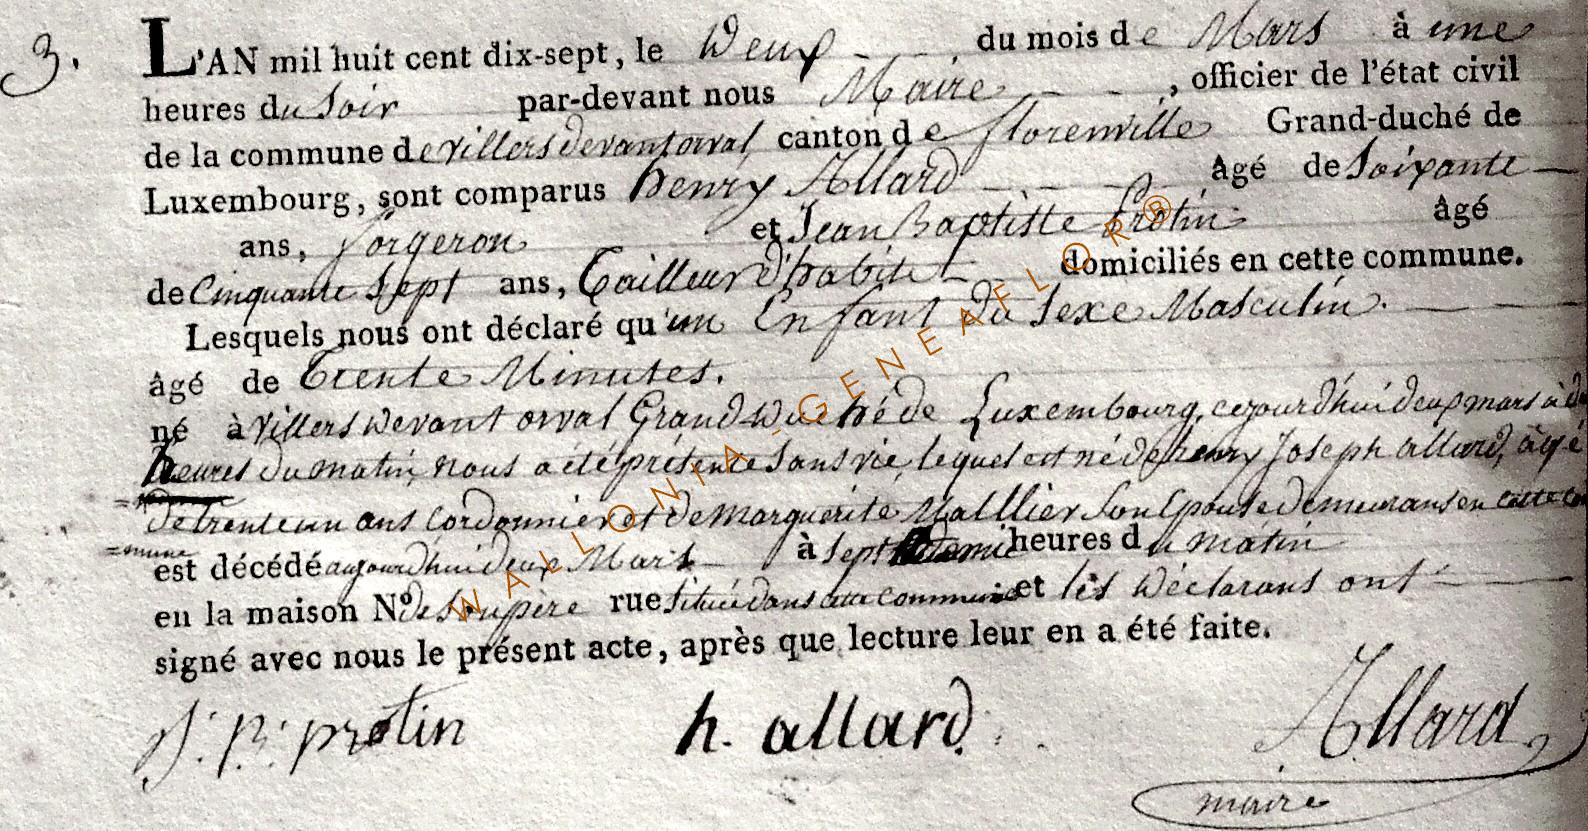 3.
L'AN mil huit cent dix-sept, le Deux du mois de Mars à une
heures du Soir par-devant nous Maire, officier de l'état civil
de la commune de villers devant orval canton de florenville Grand-duché de
Luxembourg, sont comparus henry Allard âgé de Soixante
ans, forgeron et Jean Baptiste Protin âgé
de Cinquante Sept ans, Tailleur d'habits domiciliés en cette commune.
Lesquels nous ont déclaré qu'un Enfant du Sexe Masculin.
âgé de Trente Minutes.
né à Villers Devant orval Grand Duché de Luxembourg, cejourd'hui deux mars à
heures du matin, nous a été présenté Sans vie, lequel est né de henry Joseph allard, âgé
de trente un ans Cordonnier et de Marguerite Son Epouse demeurans en cette com
=mune
est décédé aujourd'hui deux Mars à Sept heures du matin
en la maison No de Son père rue Située dans cette commune et les Déclarans ont
signé avec nous le présent acte, après que lecture leur en a été faite.
J: B: protin h. allard Allard
maire
WALLONIA-GENEAFLOR®